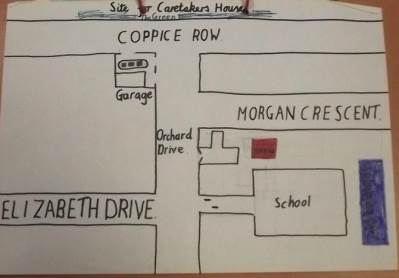 Site for Caretakers House
The Green
COPPICE ROW
Garage
MORGAN CRESCENT.
Orchard
Drive.
School
ELIZABETH DRIVE.